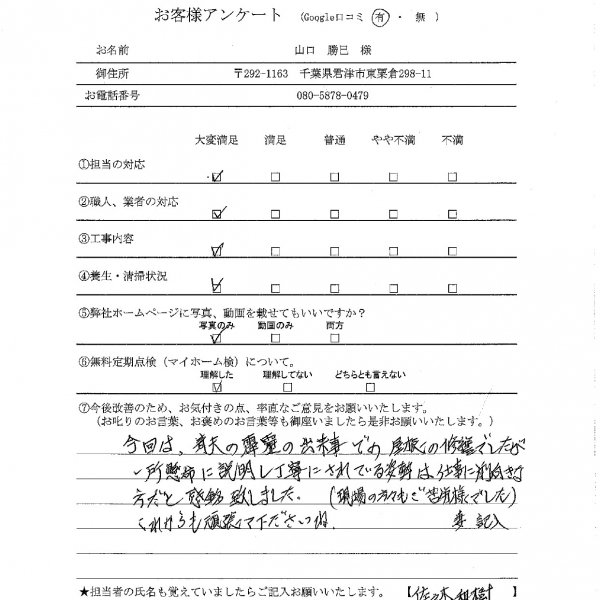 お客様アンケート （Google口コミ 有 ・ 無 ）
お名前 山口 勝巳 様
御住所 〒292-1163 千葉県君津市東粟倉298-11
お電話番号 080-5878-0479
大変満足 満足 普通 やや不満 不満
①担当の対応
②職人、業者の対応
③工事内容
④養生・清掃状況
⑤弊社ホームページに写真、動画を載せてもいいですか？
写真のみ 動画のみ 両方
⑥無料定期点検（マイホーム検）について。
理解した 理解してない どちらとも言えない
⑦今後改善のため、お気付きの点、率直なご意見をお願いいたします。
（お叱りのお言葉、お褒めのお言葉等も御座いましたら是非お願いいたします。）
今回は、青天の霹靂の出来事での屋根の修繕でしたが
一所懸命に説明し丁寧にされている姿勢は仕事に前向きな
方だと 致しました。（現場の方々もご苦労様でした）
これからも頑張って下さいね。 妻 記入
★担当者の氏名も覚えていましたらご記入お願いいたします。 【佐々木 樹】